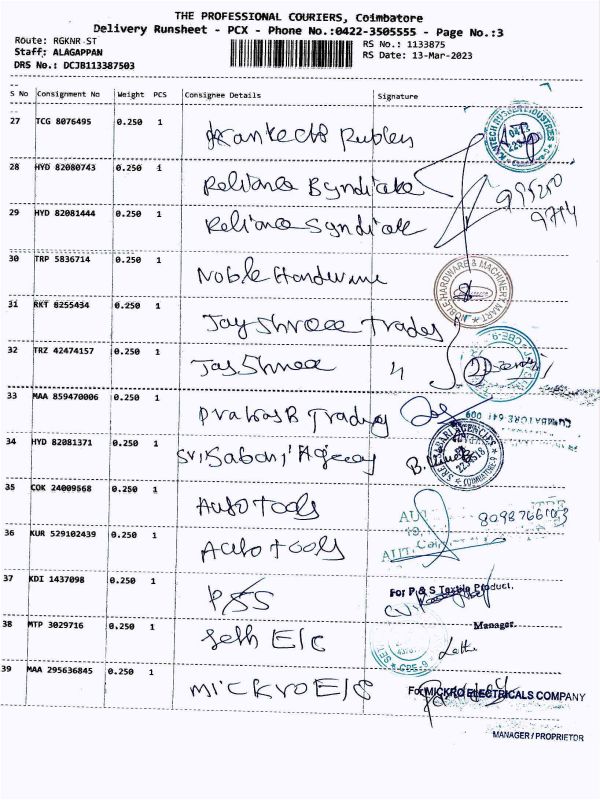 THE PROFESSIONAL COURIERS, Coimbatore
Delivery Runsheet - PCX - Phone No.:0422-3505555 - Page No.:3
Route: RGKNR ST RS No.: 1133875
Staff: ALAGAPPAN RS Date: 13-Mar-2023
DRS No.: DCJB113387503
S No Consignment No Weight PCS Consignee Details Signature
27 TCG 8076495 0.250 1 Kantech Rubber
28 HYD 82080743 0.250 1 Reliance Syndicate
29 HYD 82081444 0.250 1 Reliance Syndicate
9774
30 TRP 5836714 0.250 1 Noble Hardware
31 RKT 8255434 0.250 1 Jay Shree Trades
32 TRZ 42474157 0.250 1 Jay Shree
33 MAA 859470006 0.250 1 Prakash Trading
COIMBATORE 641 009
34 HYD 82081371 0.250 1 Sri Sabari Agency
SRI SABARI AGENCIES
COIMBATORE-9
35 COK 24009568 0.250 1 Auto Tools
36 KUR 529102439 0.250 1 Auto Tools
37 KDI 1437098 0.250 1 PSS
For P & S Textile Product.
Manager.
38 MTP 3029716 0.250 1 Seth E/c
CBE-9
39 MAA 295636845 0.250 1 Mickro E/s
For MICKRO ELECTRICALS COMPANY
MANAGER / PROPRIETOR